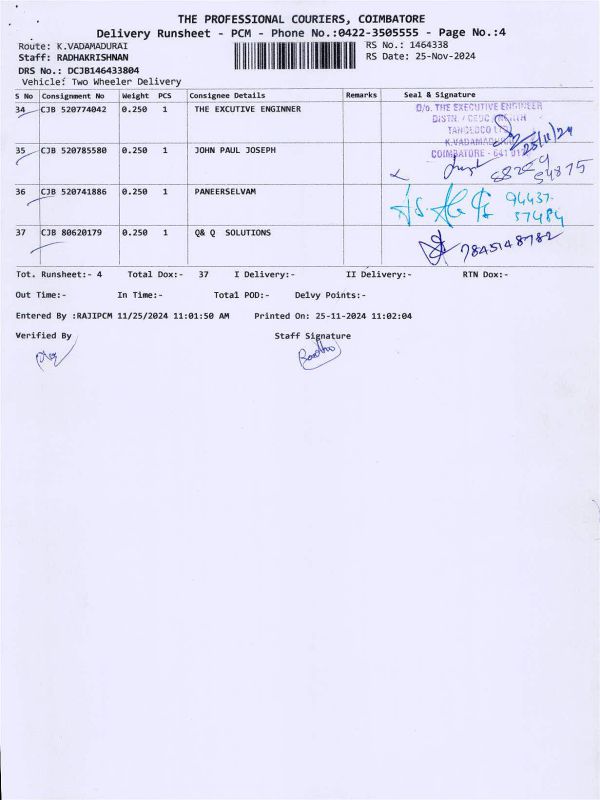 THE PROFESSIONAL COURIERS, COIMBATORE
Delivery Runsheet - PCM - Phone No.:0422-3505555 - Page No.:4
Route: K.VADAMADURAI RS No.: 1464338
Staff: RADHAKRISHNAN RS Date: 25-Nov-2024
DRS No.: DCJB146433804
Vehicle: Two Wheeler Delivery
S No Consignment No Weight PCS Consignee Details Remarks Seal & Signature
34 CJB 520774042 0.250 1 THE EXCUTIVE ENGINNER
O/o. THE EXECUTIVE ENGINEER
TANGEDCO
K.VADAMADURAI
COIMBATORE - 641 017
25/11/24
35 CJB 520785580 0.250 1 JOHN PAUL JOSEPH
54875
36 CJB 520741886 0.250 1 PANEERSELVAM
94437-
37484
37 CJB 80620179 0.250 1 Q& Q SOLUTIONS 7845148782
Tot. Runsheet:- 4 Total Dox:- 37 I Delivery:- II Delivery:- RTN Dox:-
Out Time:- In Time:- Total POD:- Delvy Points:-
Entered By :RAJIPCM 11/25/2024 11:01:50 AM Printed On: 25-11-2024 11:02:04
Verified By Staff Signature